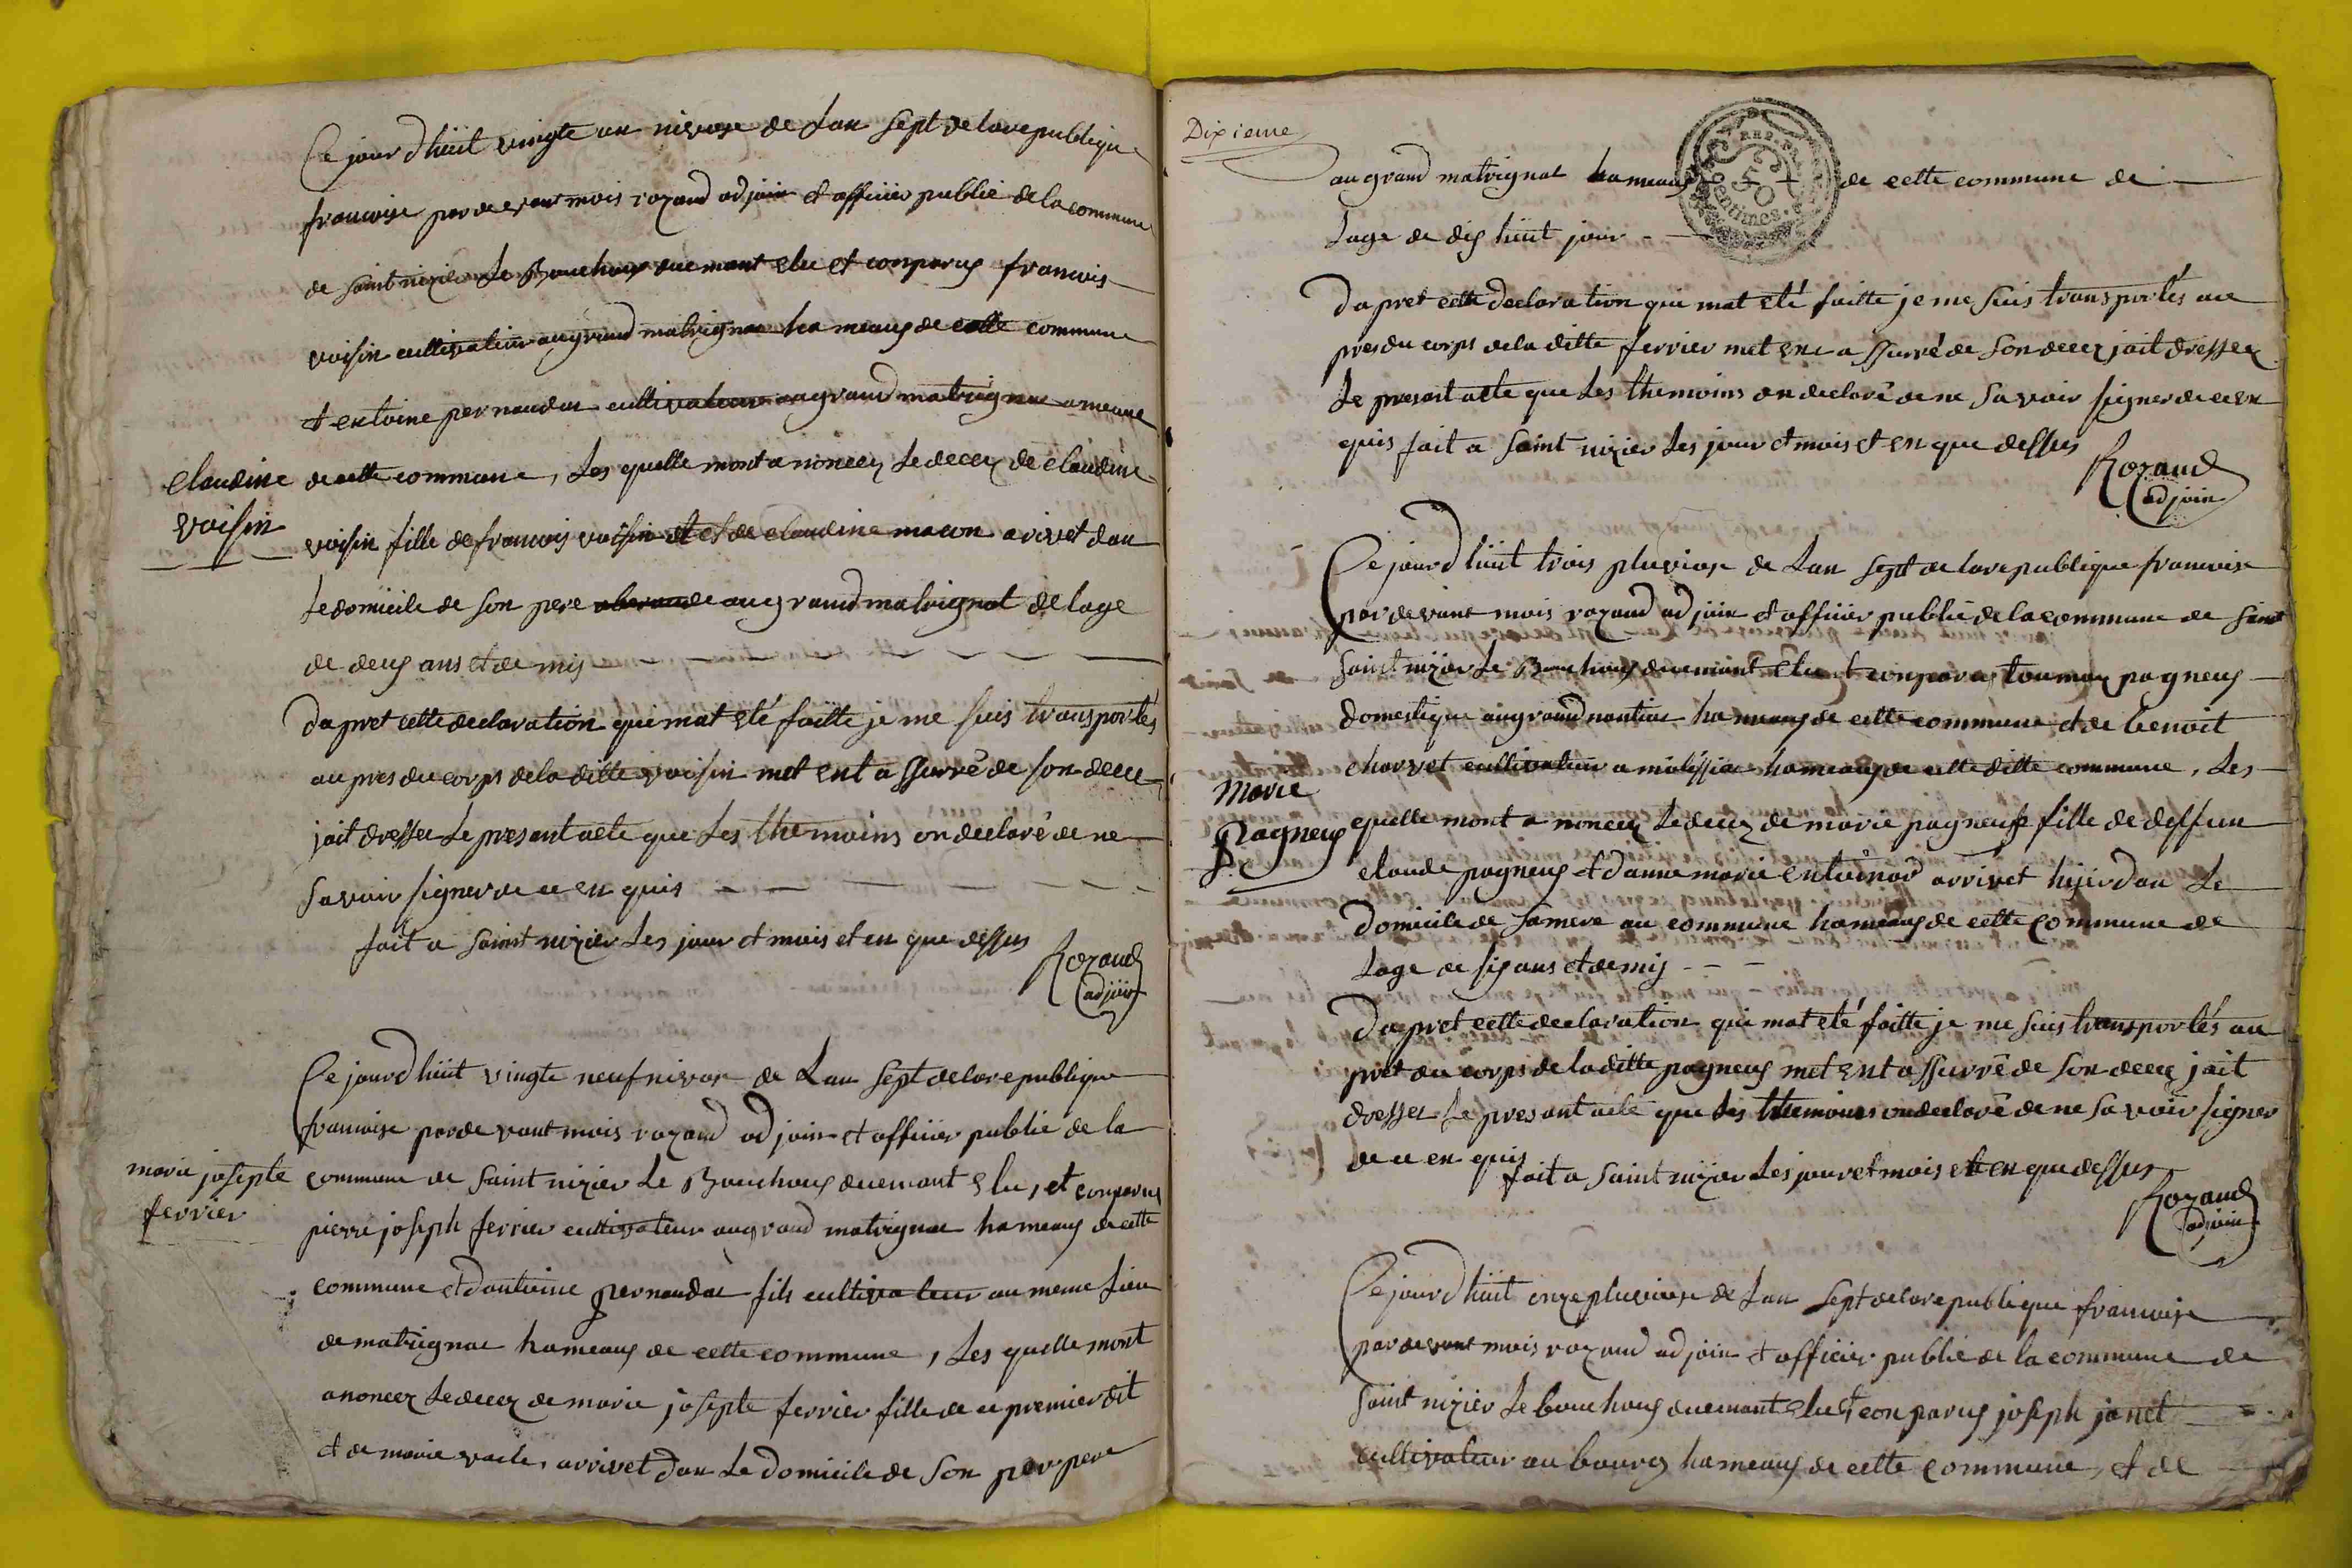 Ce jour d'hüit vingte un nivose de Lan Sept de la republique
francoise par devant mois rozand adjoin et officier public de la commune
de Saint nizier Le Bouchoux duemant elu et conparus francois
voisin cultivateur au grand matrignat hameaux de cette commune
et entoine pernaudat cultivateur au grand matrignat ameaux
Claudine
voisin
de cette commune, Les quelle mont anoncez Le decez de claudine
voisin fille de francois voisin et et de claudine macon arivet dan
Le domicile de Son pere au grand matrignat de lage
de deux ans et demis
Dapret cette declaration qui mat eté faitte je me suis transportés
au pres du corps de la ditte voisin met ent assurré de son decez
jait dresser Le presant acte que Les themoins on declaré de ne
Savoir signer de ce en quis
fait a Saint nizier Les jour et mois et en que dessus
Rozand
adjoin
Ce jour d'hüit vingte neuf nivose de Lan Sept de la republique
francoise par de vant mois rozand adjoin et officier public de la
marie josepte
ferrier
commune de Saint nizier Le Bouchoux duemant elu, et conparus
pierre joseph ferrier cultivateur au grand matrignat hameaux de cette
commune et dantoine pernaudat fils cultivateur au meme Lieu
de matrignat hameaux de cette commune, Les quelle mont
anoncez Le decez de marie josepte ferrier fille de ce premier dit
et de marie vacle, arrivet dan Le domicile de Son per pere
Dixieme
au grand matrignat hameaux de cette commune de
REP. FRA.
50
centimes.
Lage de dix hüit jour
Dapret cette declaration qui mat eté faitte je me suis transportés au
pres du corps de la ditte ferrier met ent assurré de Son decez jait dresser
Le presant acte que Les themoins on declaré de ne Savoir signer de ce en
quis fait a Saint nizier Les jour et mois et en que dessus
Rozand
adjoin
Ce jour d'hüit trois pluviose de Lan Sept de la republique francoise
par devant mois rozand adjoin et officier public de la commune de Saint
Saint nizier Le Bouchoux duemant elu et conparus toumax pagneux
domestique au grand nantiat hameaux de cette commune et de benoit
charvet cultivateur a milissiat hameaux de cette ditte commune, Les
Marie
Pagneux
quelle mont anoncez Le decez de marie pagneux fille de deffun
claude pagneux et danne marie entoinad arrivet hijir dan Le
domicile de Samere au commune hameaux de cette commune de
Lage de six ans et demis
Dapret cette declaration qui mat eté faitte je me suis transportés au
pret du corps de la ditte pagneux met ent assurré de Son decez jait
dresser Le presant acte que Les themoins on declaré de ne Savoir signer
de ce en quis
fait a Saint nizier Les jour et mois et en que dessus
Rozand
adjoin
Ce jour d'hüit onze pluviose de Lan Sept de la republique francoise
par devant mois rozand adjoin et officier public de la commune de
Saint nizier Le bouchoux duemant elu et conparus joseph janet
cultivateur au bourg hameaux de cette commune, et de